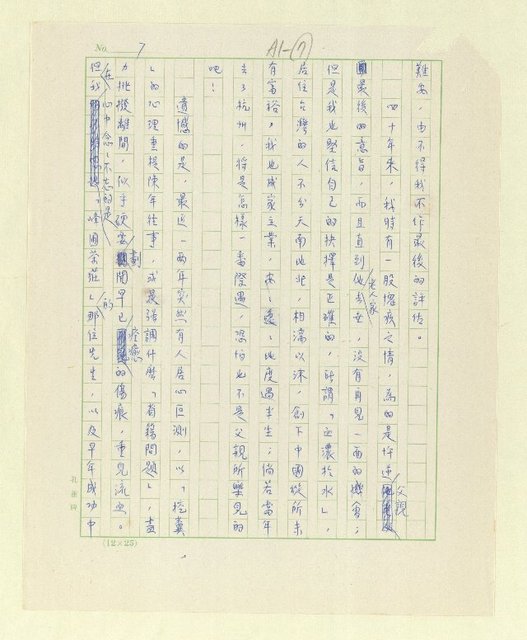 No. 7
A1-⑦
難安，由不得我不作最後的評估。
四十年來，我時有一股愧疚之情，為的是忤逆父親
最後的意旨，而且直到他老人家去世，沒有再見一面的機會；
但是我也堅信自己的抉擇是正確的，所謂「血濃於水」，
居住台灣的人不分天南地北，相濡以沫，創下中國從所未
有富裕，我也成家立業，平平穩穩地度過半生；倘若當年
去了杭州，將是怎樣一番際遇，恐怕也不是父親所樂見的
吧！
遺憾的是，最近一兩年突然有人居心叵測，以「挖糞
」的心理重提陳年往事，或是強調什麼「省籍問題」，盡
力挑撥離間，似乎硬要劃開早已痊癒的傷痕，重見流血。
但我在心中念念不忘的是「峰圃茶莊」的那位先生，以及早年成功中
(12×25)